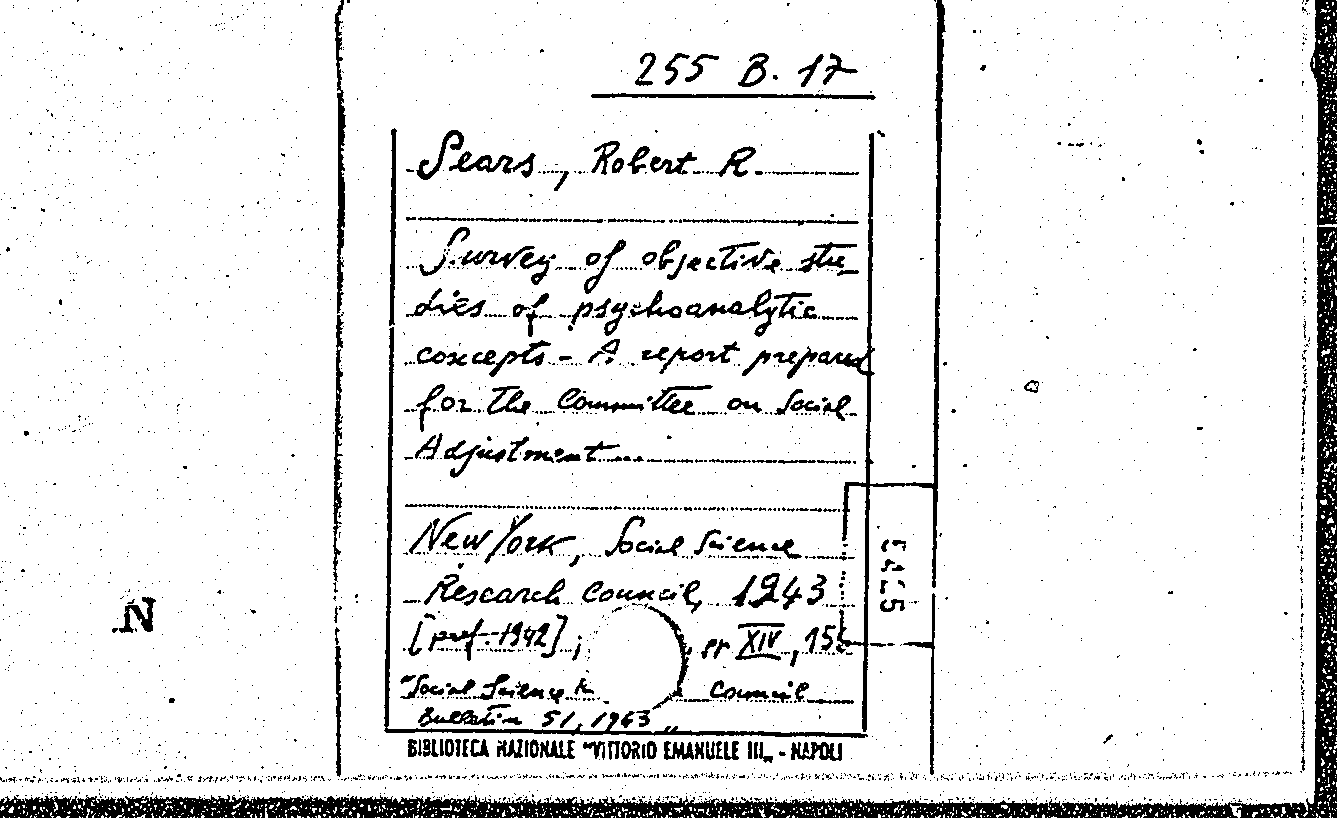 255 B. 17
Sears, Robert R.
Survey of objective stu_
dies of psychoanalytic
concepts - A report prepared
for the Committee on Social
Adjustment...
New York, Social Science
Research Council, 1943
[pref. 1942]; pp XIV, 15
"Social Science R Council
Bulletin 51, 1943 „
BIBLIOTECA NAZIONALE "VITTORIO EMANUELE III„ - NAPOLI
N